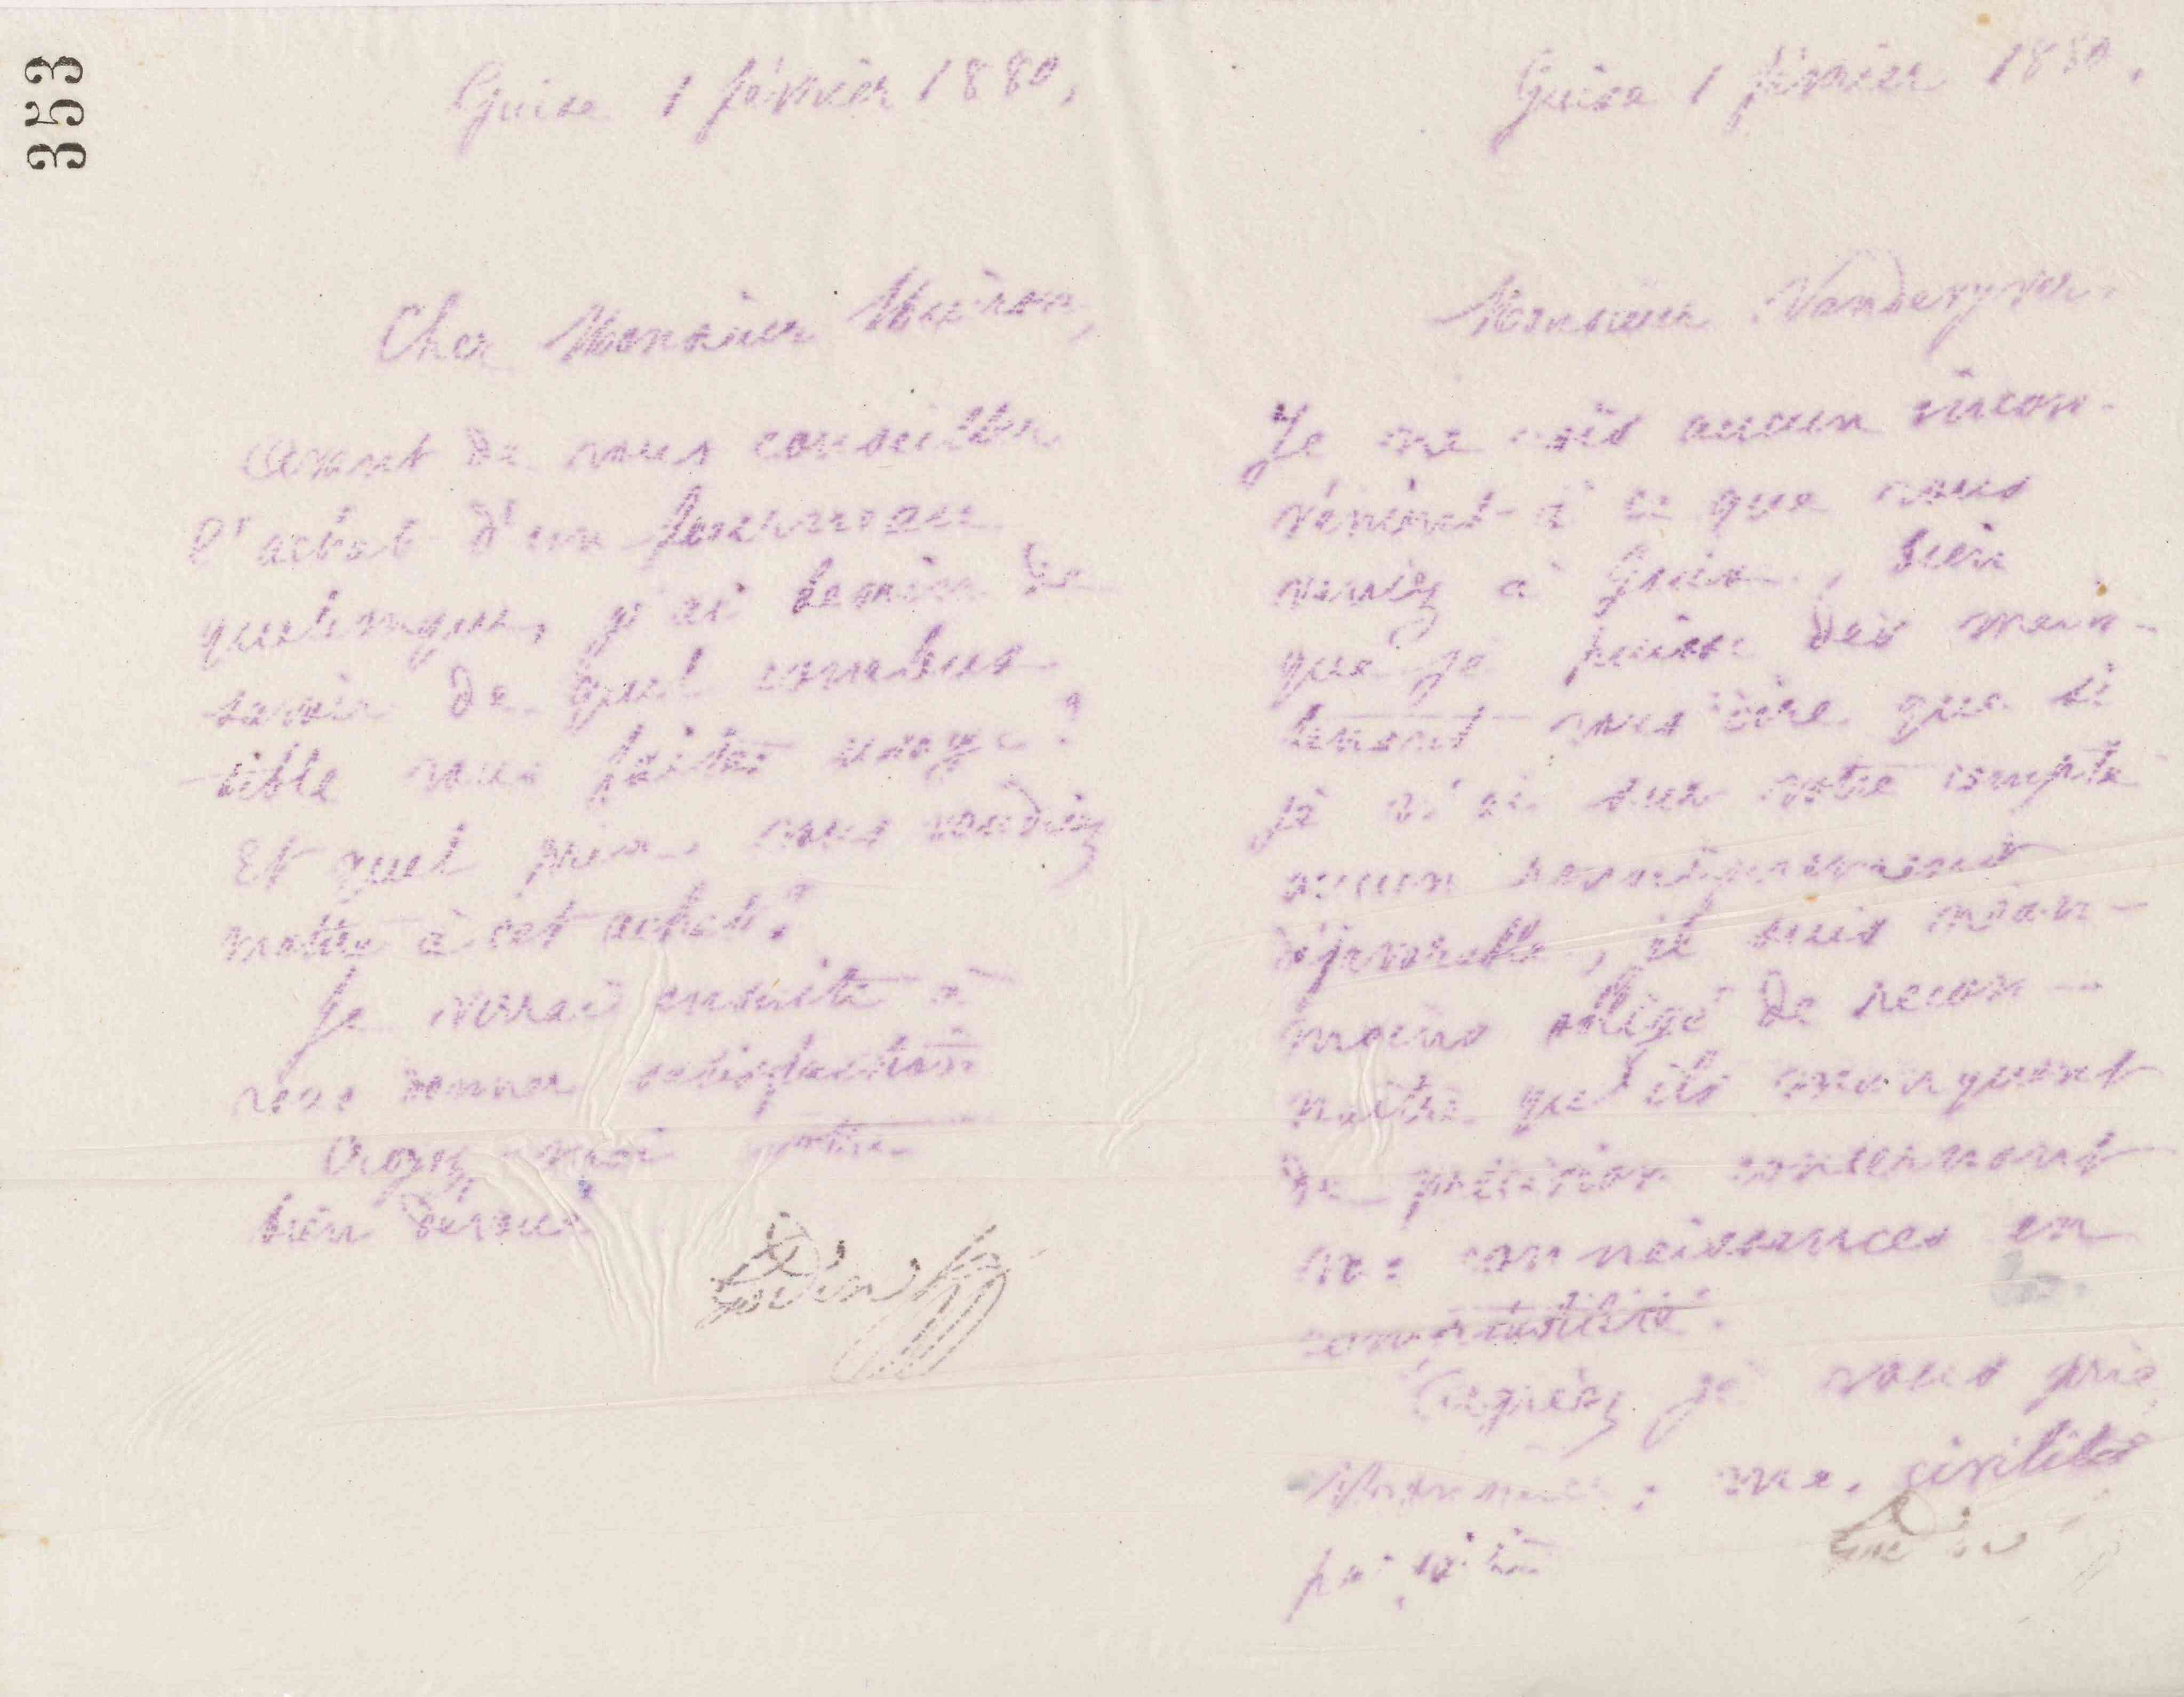 353
Guise 1 février 1880,
Cher Monsieur
Avant de vous conseiller
l'achat d'un fourneau
quelconque, j'ai besoin de
savoir de quel combus
tible vous faites usage ?
Et quel prix vous voudriez
mettre à cet achat ?
Je verrai ensuite à
vous donner satisfaction
Croyez moi votre
bien dévoué
Godin
Guise 1 février 1880,
Monsieur Vanderyver.
Je ne vois aucun incon-
vénient à ce que vous
veniez à Guise, bien
que je puisse dès main-
tenant vous dire que si
je n'ai sur votre compte
aucun renseignement
défavorable, je suis néan-
moins obligé de recon-
naître qu'ils manquent
de précision concernant
vos connaissances en
comptabilité.
Agréez je vous prie
Monsieur, mes civilités
Godin